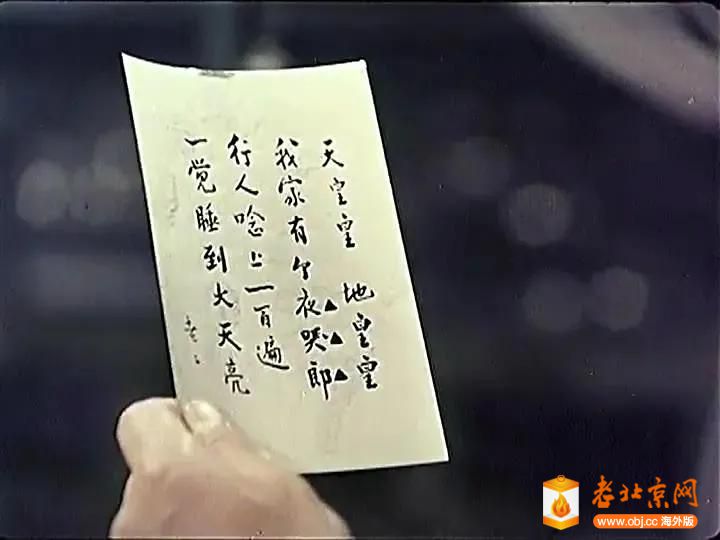 天皇皇 地皇皇
我家有个夜哭郎
行人唸上一百遍
一觉睡到大天亮
老北京网
www.obj.cc 海外版